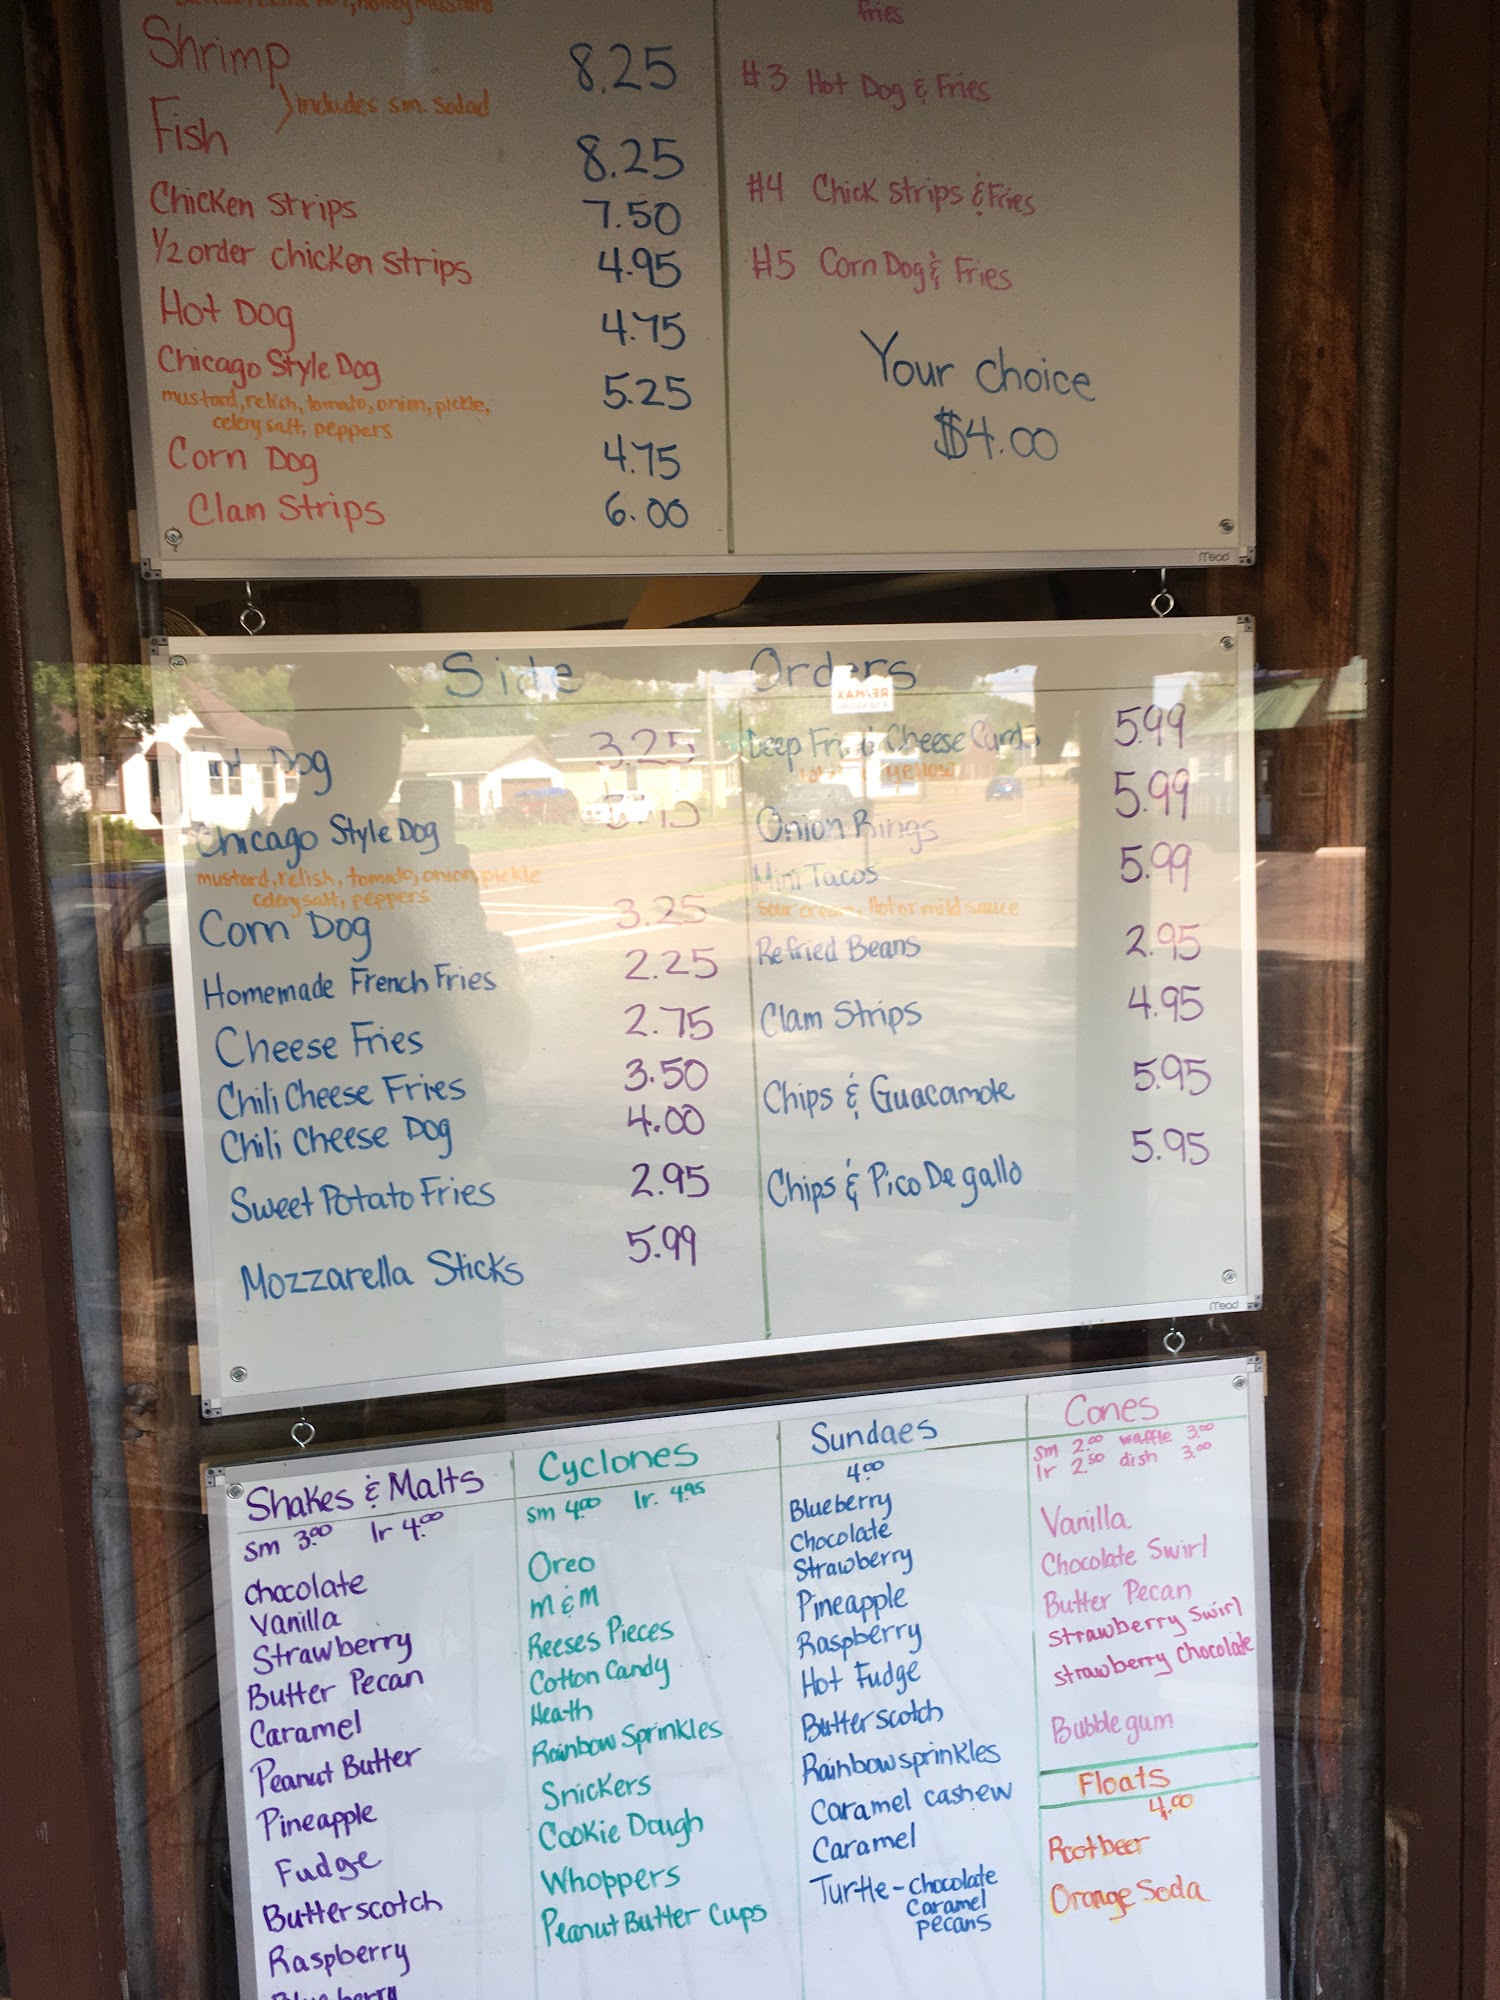 fries
Shrimp 8.25
includes sm. salad
Fish 8.25
Chicken Strips 7.50
1/2 order chicken strips 4.95
Hot Dog 4.75
Chicago Style Dog 5.25
mustard, relish, tomato, onion, pickle,
celery salt, peppers
Corn Dog 4.75
Clam Strips 6.00
#3 Hot Dog & Fries
#4 Chick Strips & Fries
#5 Corn Dog & Fries
Your Choice
$4.00
Mead
Side Orders
Dog 3.25
Chicago Style Dog
mustard, relish, tomato, onion, pickle
celery salt, peppers
Corn Dog 3.25
Homemade French Fries 2.25
Cheese Fries 2.75
Chili Cheese Fries 3.50
Chili Cheese Dog 4.00
Sweet Potato Fries 2.95
Mozzarella Sticks 5.99
RE/MAX
Deep Fried Cheese Curds 5.99
Onion Rings 5.99
Mini Tacos 5.99
Sour cream, Hot or mild sauce
Refried Beans 2.95
Clam Strips 4.95
Chips & Guacamole 5.95
Chips & Pico De gallo 5.95
Mead
Shakes & Malts
sm 3.00 lr 4.00
chocolate
Vanilla
Strawberry
Butter Pecan
Caramel
Peanut Butter
Pineapple
Fudge
Butterscotch
Raspberry
Blueberry
Cyclones
sm 4.00 lr. 4.95
Oreo
M & M
Reeses Pieces
Cotton Candy
Heath
Rainbow Sprinkles
Snickers
Cookie Dough
Whoppers
Peanut Butter Cups
Sundaes
4.00
Blueberry
Chocolate
Strawberry
Pineapple
Raspberry
Hot Fudge
Butterscotch
Rainbow sprinkles
Caramel cashew
Caramel
Turtle - chocolate
Caramel
pecans
Cones
sm 2.00 waffle 3.00
lr 2.50 dish 3.00
Vanilla
Chocolate Swirl
Butter Pecan
Strawberry Swirl
strawberry chocolate
Bubble gum
Floats
4.00
Rootbeer
Orange Soda